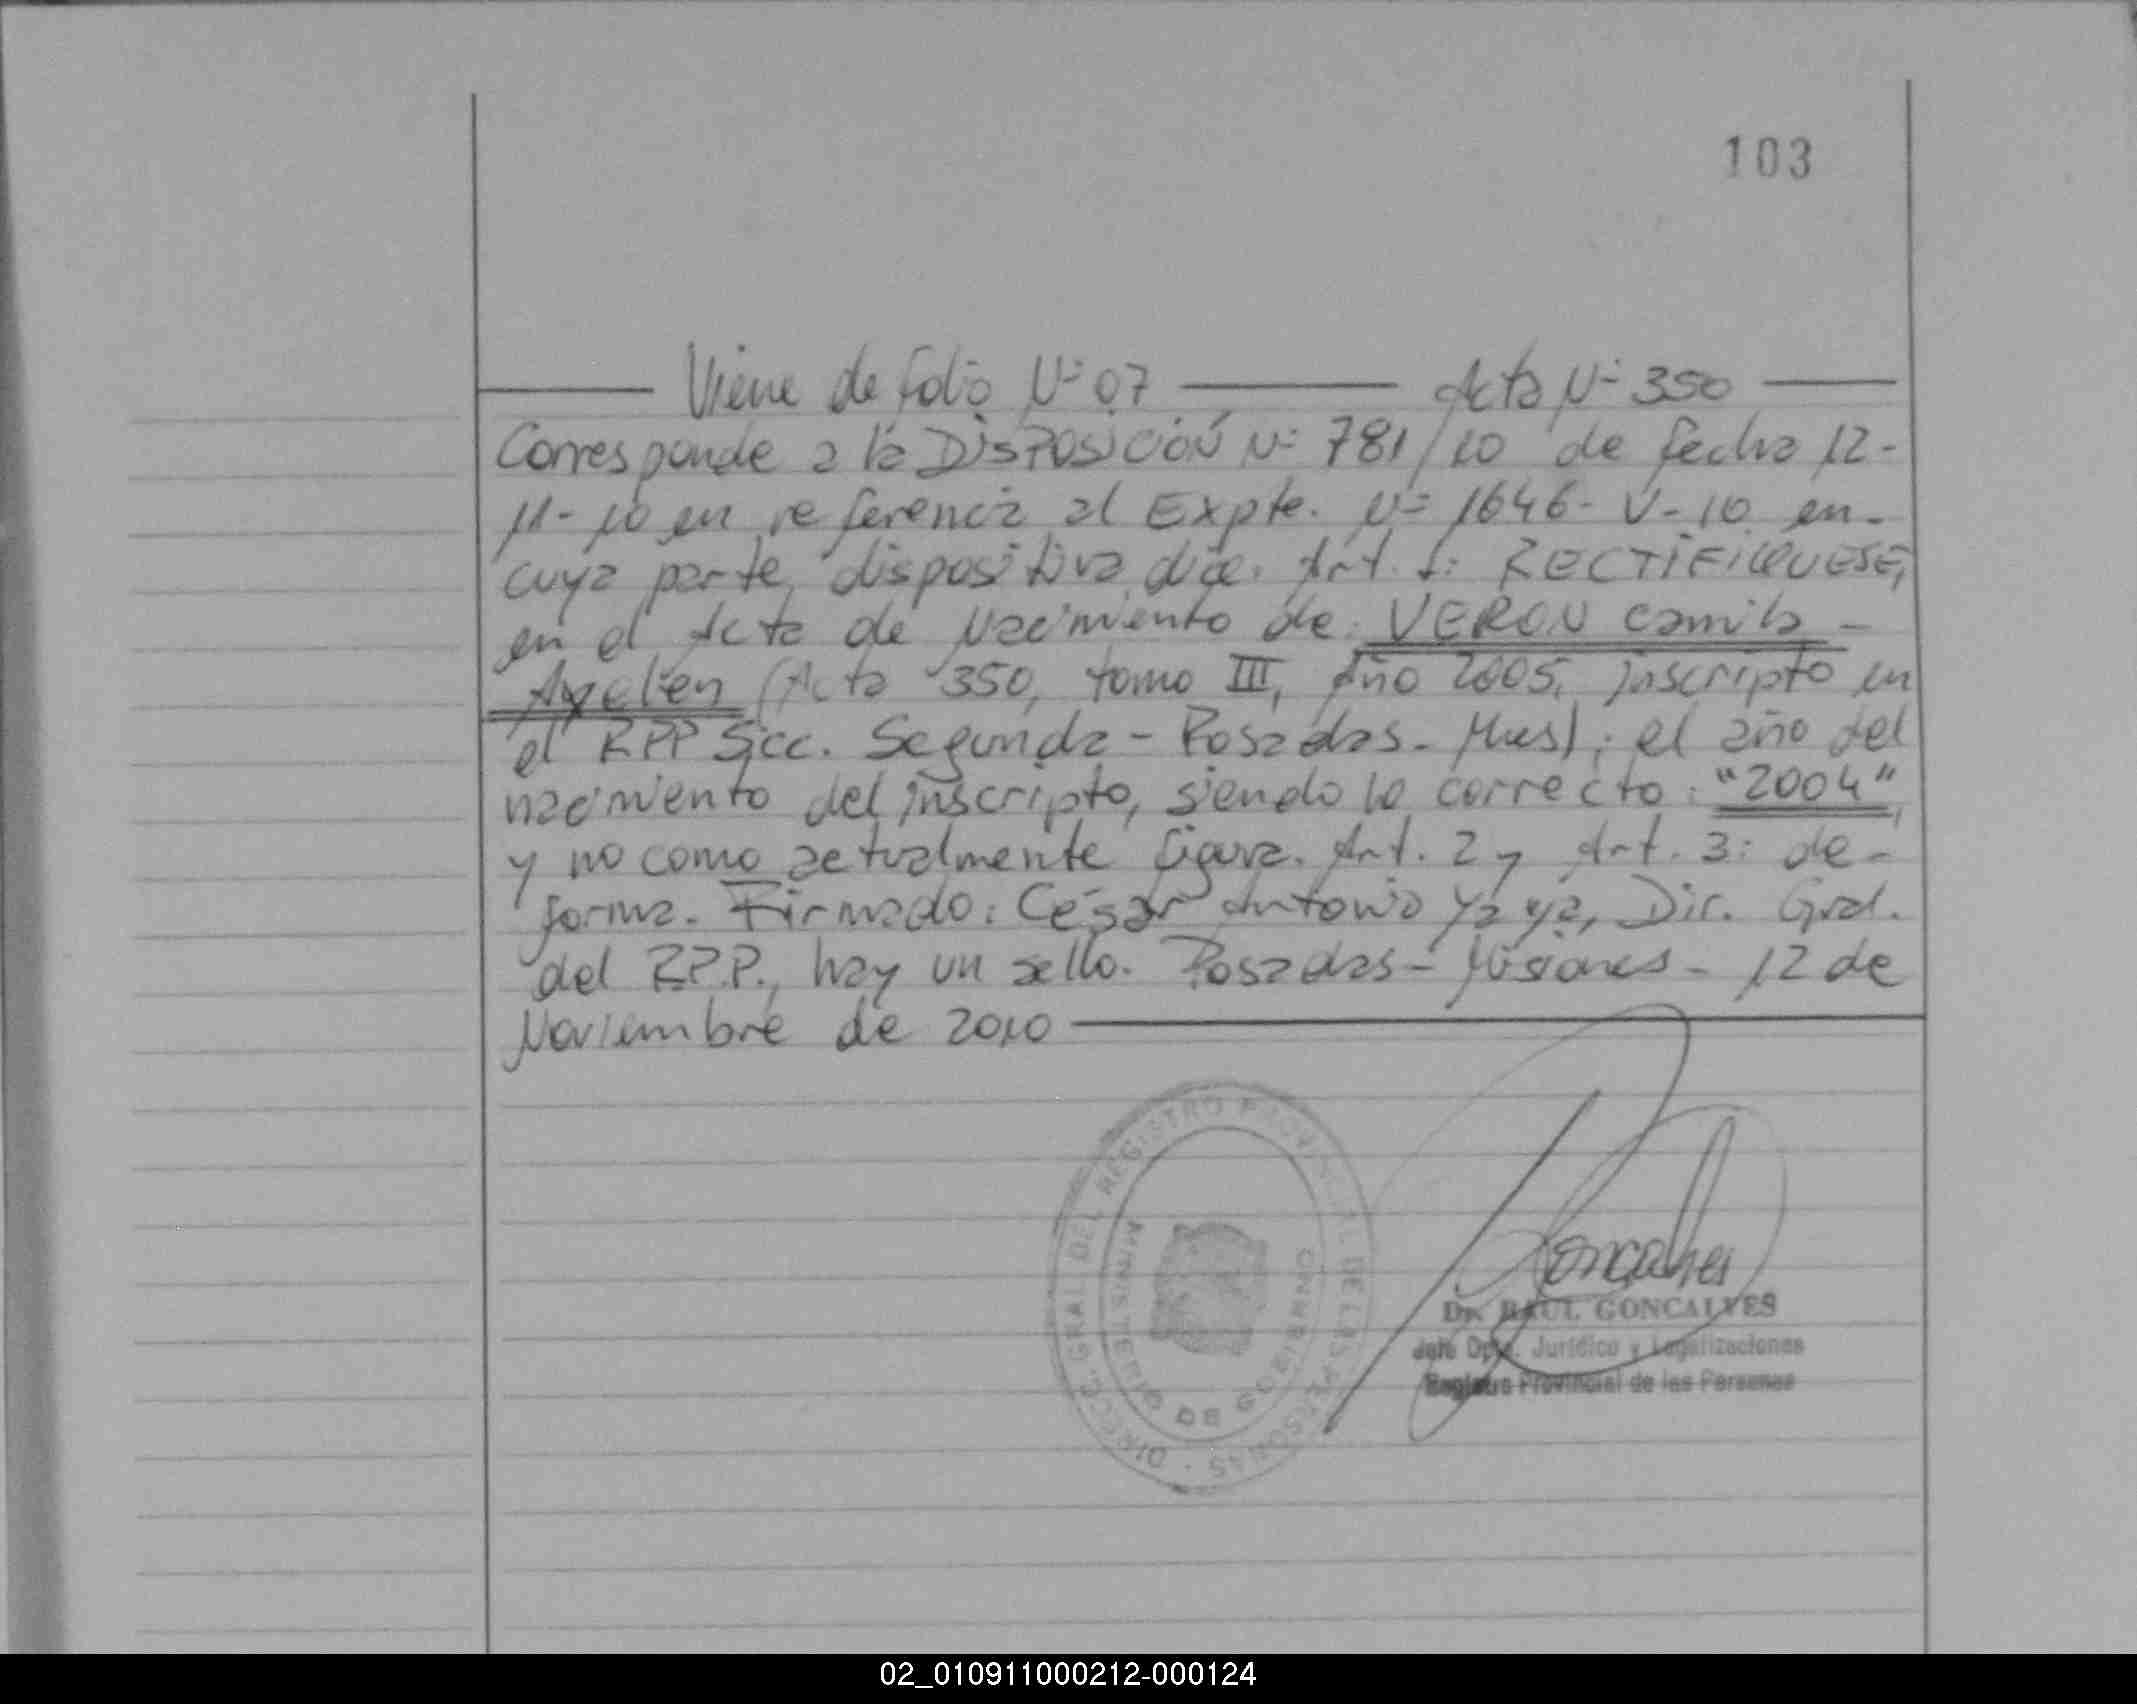 103
Viene de folio Nº 07 Acta Nº 350
Corresponde a la DISPOSICIÓN Nº 781/10 de fecha 12-
11-10 en referencia al Expte. Nº 1646-V-10 en-
cuya parte dispositiva dice. Art. 1: RECTIFIQUESE,
en el Acta de Nacimiento de: VERON Camila -
Ayelen (Acta 350, tomo III, Año 2005, inscripto en
el RPP Secc. Segunda - Posadas - Mnes); el año del
nacimiento del inscripto, siendo lo correcto: "2004",
y no como actualmente figura. Art. 2 y Art. 3: de-
forma. Firmado: César Antonio Yaya, Dir. Gral.
del R.P.P., hay un sello. Posadas - Misiones - 12 de
Noviembre de 2010
DIRECC. GRAL DEL REGISTRO PROVINCIAL DE LAS PERSONAS
Goncalves
Dr. RAUL GONCALVES
Jefe Dpto. Jurídico y Legalizaciones
Registro Provincial de las Personas
02_010911000212-000124